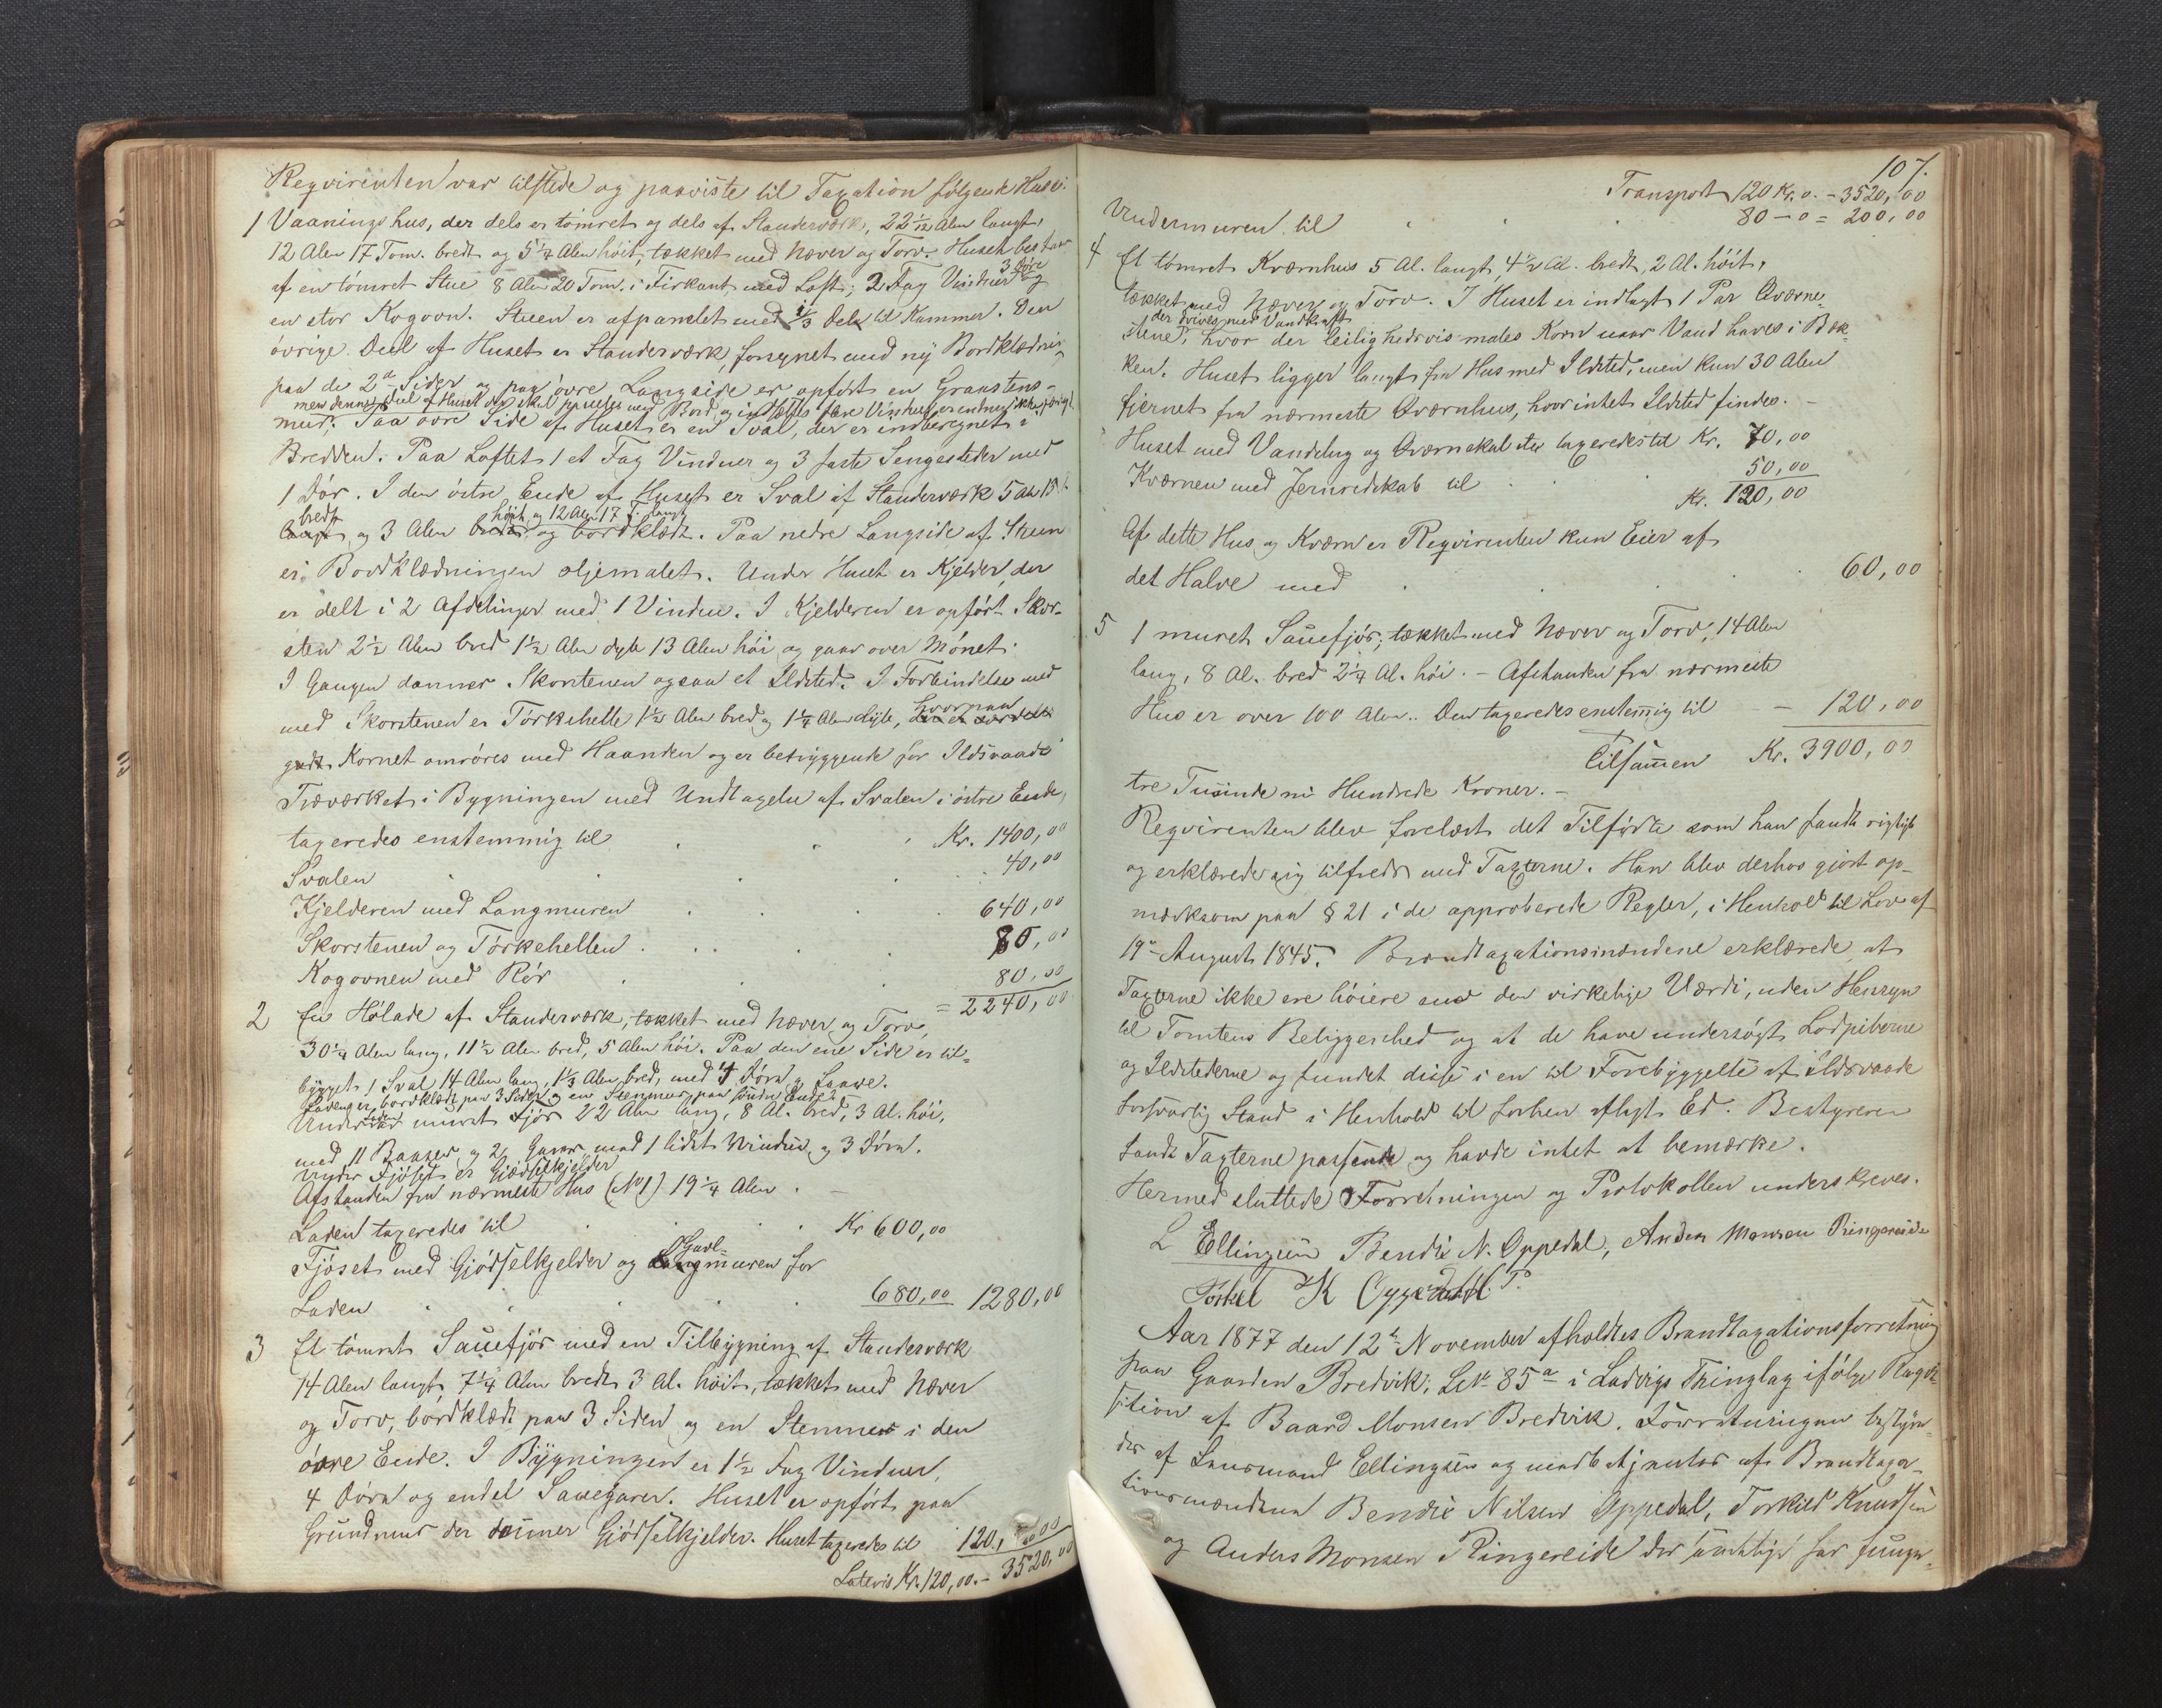 Reqvirenten var tilstede og paaviste til Taxation følgende Huse:
1 Vaaningshus, der dels er tømret og dels af Standerværk, 22 1/12 Alen langt,
12 Alen 17 Tom. bredt og 5 1/4 Alen høit, tækket med Næver og Torv. Huset bestaar
3 Døre
af en tømret Stue 8 Alen 20 Tom. i Firkant med Loft; 2 Fag Vinduer og
en stor Kogovn. Stuen er afpanelet med 1/3 Del til Kammer. Den
øvrige Deel af Huset er Standerværk, forsynet med ny Bordklædning
paa de 2de Sider og paa øvre Langside er opført en Graastens-
men denne Deel af Huset der skal paneles med Bord og indsættes flere Vinduer er endnu ikke færdig
mur; Paa øvre Side af Huset er en Sval, der er indberegnet i
Bredden. Paa Loftet 1 et Fag Vinduer og 3 faste Sengesteder med
1 Dør. I den østre Ende af Huset er Sval af Standerværk 5 Al. 15 T.
bredt høit og 12 Alen 17 T. langt
langt og 3 Alen bredt og bordklædt. Paa nedre Langside af Stuen
er Bordklædningen oljemalet. Under Huset er Kjelder, der
er delt i 2 Afdelinger med 1 Vindue. I Kjelderen er opført Skor-
sten 2 1/2 Alen bred 1 1/2 Alen dyb 13 Alen høi og gaar over Mønet.
I Gangen danner Skorstenen ogsaa et Ildsted. I Forbindelse med
hvorpaa
med Skorstenen er Tørkehelle 1 1/2 Alen bred og 1 1/4 Alen dyb,
Kornet omrøres med Haanden og er betryggende for Ildsvaade
Træværket i Bygningen med Undtagelse af Svalen i østre Ende,
taxeredes enstemmig til Kr. 1400,00
Svalen 40,00
Kjelderen med Langmuren 640,00
Skorstenen og Tørkehellen 80,00
Kogovnen med Rør 80,00
= 2240,00
2 En Hølade af Standerværk, tækket med Næver og Torv,
30 1/4 Alen lang, 11 1/2 Alen bred, 5 Alen høi. Paa den ene Side er til-
bygget 1 Sval 14 Alen lang, 1 1/3 Alen bred, med 4 Døre og Laave.
Laden er bordklædt paa 3 Sider og en Stenmur paa søndre Ende.
Under Laden muret Fjøs 22 Alen lang, 8 Al. bred, 3 Al. høi,
med 11 Baaser og 2 Garer med 1 lidet Vindue og 3 Døre.
Under Fjøset er Gjødselkjelder
Afstanden fra nærmeste Hus (No 1) 19 1/4 Alen. —
Laden taxeredes til Kr 600,00
Gavl-
Fjøset med Gjødselkjelder og Langmuren for
Laden 680,00 1280,00
3 Et tømret Sauefjøs med en Tilbygning af Standerværk
14 Alen langt, 7 1/4 Alen bredt 3 Al. høit, tækket med Næver
og Torv, bordklædt paa 3 Sider og en Stenmur i den
øvre Ende. I Bygningen er 1 1/2 Fag Vinduer,
4 Døre og endel Sauegarer. Huset er opført paa
Grundmur der danner Gjødselkjelder. Huset taxeredes til 120,00
Lateris Kr. 120,00. — 3520,00
107.
Transport 120 Kr. 0. — 3520,00
Undermuren til 80 — 0 = 200,00
4 Et tømret Kværnhus 5 Al. langt, 4 1/2 Al. bredt, 2 Al. høit,
tækket med Næver og Torv. I Huset er indlagt 1 Par Qværne-
der drives med Vandkraft
stene, hvor der leilighedsvis males Korn naar Vand haves i Bæk-
ken. Huset ligger langt fra Hus med Ildsted, men kun 30 Alen
fjernet fra nærmeste Qværnhus, hvor intet Ildsted findes. —
Huset med Vandelug og Qværnekal etc taxeredes til Kr. 70,00
Kværnen med Jernredskab til 50,00
Kr. 120,00
Af dette Hus og Kværn er Reqvirenten kun Eier af
det Halve med 60,00
5 1 muret Sauefjøs, tækket med Næver og Torv, 14 Alen
lang, 8 Al. bred 2 1/4 Al. høi. — Afstanden fra nærmeste
Hus er over 100 Alen. Den taxeredes enstemmig til — 120,00
Tilsammen Kr. 3900,00
tre Tusinde ni Hundrede Kroner. —
Reqvirenten blev forelæst det Tilførte som han fandt rigtigt
og erklærede sig tilfreds med Taxterne. Han blev derhos gjort op-
mærksom paa § 21 i de approberede Regler, i Henhold til Lov af
19de August 1845. Brandtaxationsmændene erklærede at
Taxterne ikke ere høiere end den virkelige Værdi, uden Hensyn
til Tomtens Beliggenhed og at de have undersøgt Lodpiberne
og Ildstederne og fundet disse i en til Forebyggelse af Ildsvaade
forsvarlig Stand i Henhold til forhen aflagt Ed. Bestyreren
fandt Taxterne passende og havde intet at bemærke.
Hermed sluttede Forretningen og Protokollen underskreves.
L Ellingsen Bendix N. Oppedal, Anders Monsen Ringereide
Torkel K Oppedahl
Aar 1877 den 12te November afholdtes Brandtaxationsforretning
paa Gaarden Bredvik, LNo 85a i Ladvigs Thinglag ifølge Reqvi-
sition af Baard Monsen Bredvik. Forretningen bestyre-
des af Lensmand Ellingsen og med Brandtaxa-
tionsmændene Bendix Nilsen Oppedal, Torkild Knudsen
og Anders Monsen Ringereide der samtlige før funger-